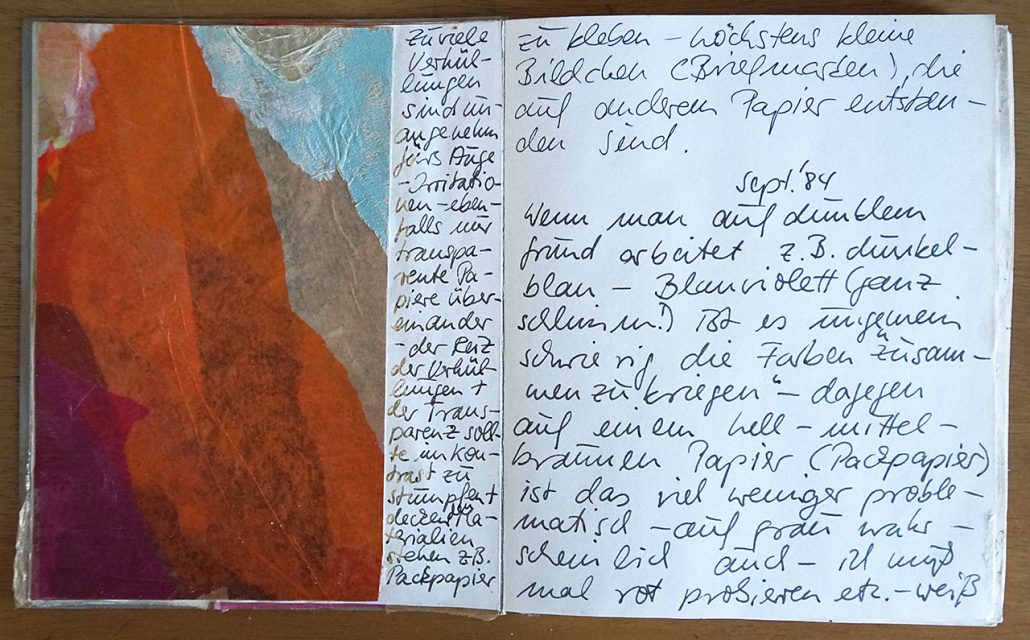 Zuviele
Verhül-
lungen
sind un-
angenehm
fürs Auge
-Irritatio-
nen-eben-
falls nur
transpa-
rente Pa-
piere über-
einander
- der Reiz
der Verhül-
lungen +
der Trans-
parenz soll-
te im Kon-
trast zu
stumpfen +
deckenMa-
terialien
stehen z.B.
Packpapier
zu kleben – höchstens kleine
Bildchen (Briefmarken), die
auf anderem Papier entstan-
den sind.
Sept. '84
Wenn man auf dunklem
Grund arbeitet z.B. dunkel-
blau – Blauviolett (ganz
schlimm!) ist es ungemein
schwierig die Farben "zusam-
menzukriegen" – dagegen
auf einem hell-mittel-
braunen Papier (Packpapier)
ist das viel weniger proble-
matisch – auf grau wahr-
scheinlich auch – ich muß
mal rot probieren etc. – weiß